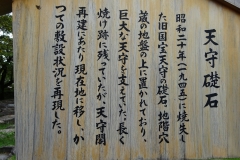 天守礎石
昭和二十年（一九四五）に焼失し
た旧国宝天守の礎石。地階穴
蔵の地盤の上に置かれており、
巨大な天守を支えていた。長く
焼け跡に残っていたが、天守閣
再建にあたり現在地に移し、か
つての敷設状況を再現した。